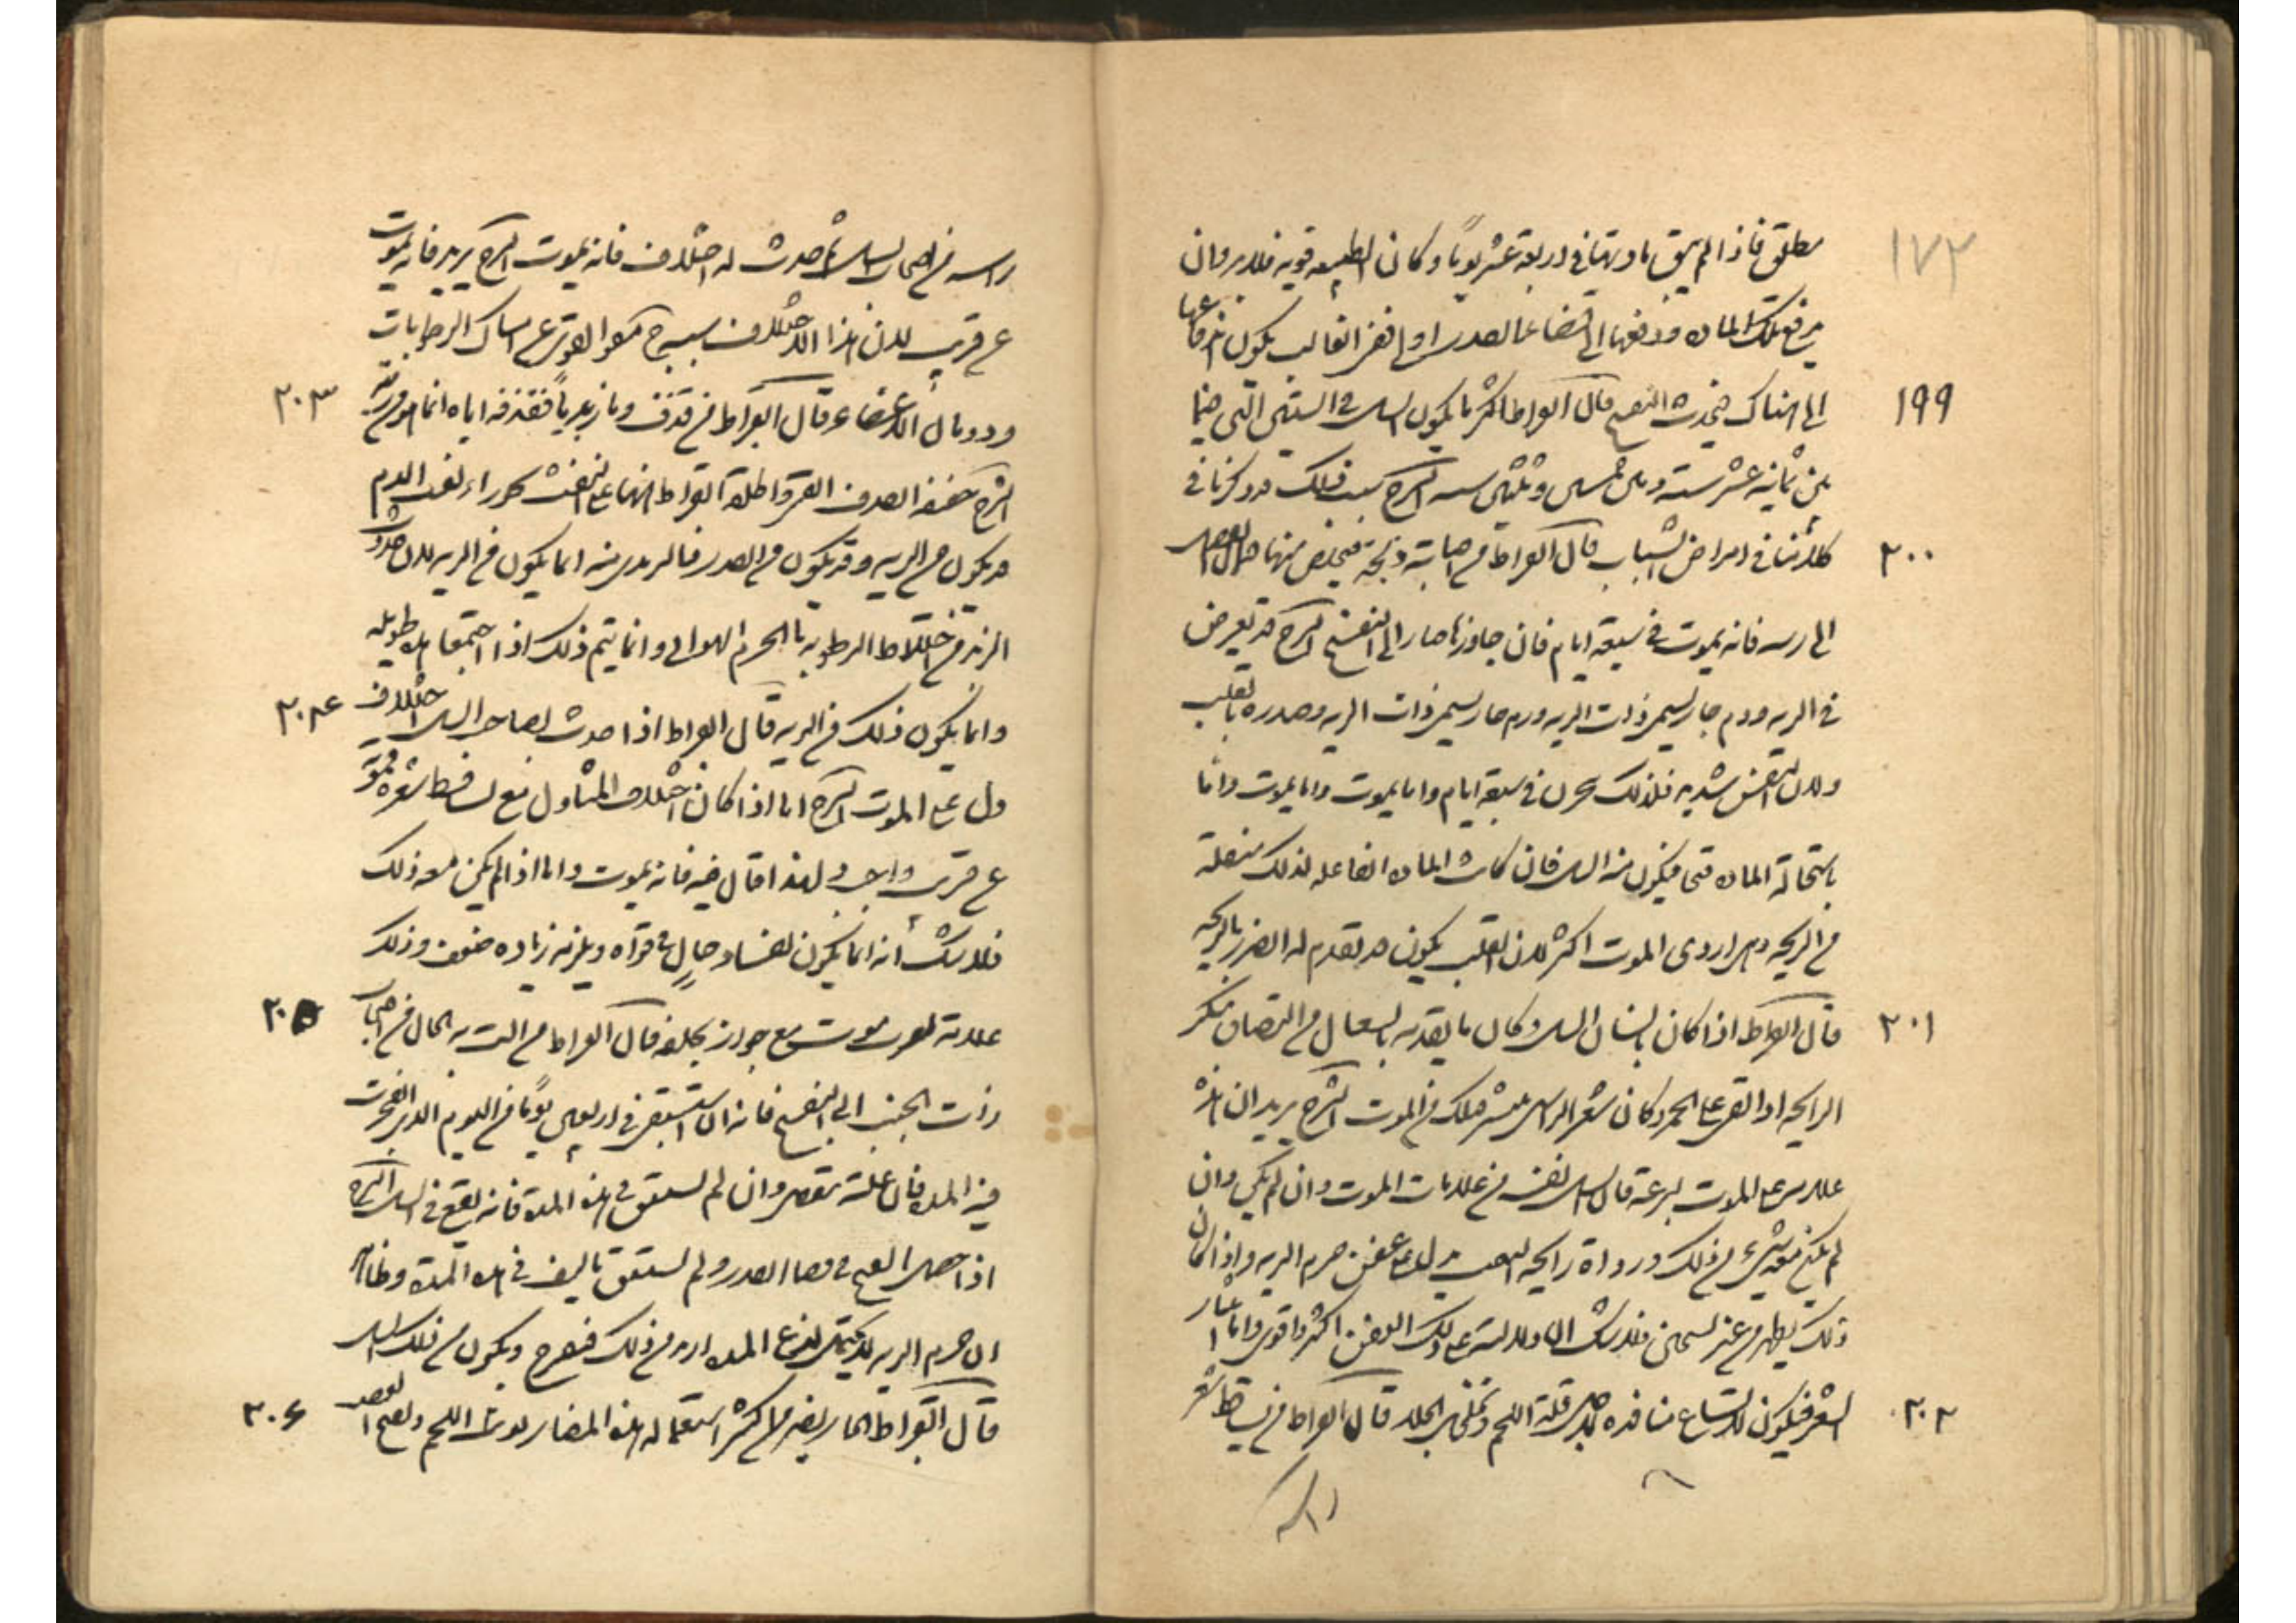 ١٧٣
مطلق فاذا لم ينق مادتها في اربعة عشر يوما و كان الطبيعه قويه فلابد وان
يدفع تلك الماده ودفعها الى فضاء الصدر اولى ففي الغالب يكون اندفاعها
١٩٩ الى هناك فيحدث التقيح قال ابقراط اكثر ما يكون السل في السنين التي فيما
بين ثمانيه عشر سنه وبين خمس و ثلثين سنه الشرح سبب ذلك قد ذكرنا في
٢٠٠ كلامنا في امراض الشباب قال ابقراط من اصابته ذبحة فتخلص منها فمال الفضل
الى ريته فانه يموت في سبعة ايام فان جاوزها صار الى التقيح الشرح قد يعرض
في الريه ورم حار يسمى ذات الريه ورم حار يسمى ذات الريه وصدره بالقلب
ولان التنفس شديد فلذلك بحران في سبعة ايام واما يموت واما يموت واما
باستحالة الماده قيحا فيكون منه السل فان كانت الماده الفاعله لذلك منتقلة
من الذبحه وهي اردى الموت اكثر لان القلب يكون قد تقدم له الضرر بالذبحه
٢٠١ قال ابقراط اذا كان بانسان السل و كان ما يقذفه بالسعال من البصاق منكر
الرايحه اذا القي على الجمر و كان شعر الراس ينتثر فذلك من الموت الشرح يريد ان هذه
علامه على الموت بسرعة فان السل نفسه من علامات الموت وان لم يكن وان
لم يكن معه شيء من ذلك ورداة رايحه النفث يدل على عفن جرم الريه واذا كان
ذلك يظهر من غير تسخين فلا شك انه اول دلالة على ذلك العفن اكثر واقوى واما انتثار
٢٠٢ الشعر فيكون لاتساع منافذه لاجل قلة اللحم وتخلخل الجلد قال ابقراط من تساقط شعر
راسه
راسه من اصحاب السل ثم حدث له اختلاف فانه يموت الشرح يريد فانه يموت
عن قريب لان هذا الاختلاف سببه ضعف القوى عن امساك الرطوبات
٢٠٣ وذوبان الاعضاء وقال ابقراط من قذف دما زبديا فقذفه اياه انما هو من ريته
الشرح القذف القي و اطلقه ابقراط ههنا على النفث نفث الدم
قد يكون من الريه وقد يكون من الصدر فالزبدي منه انما يكون من الريه لان حدوث
الزبد من اختلاط الرطوبه بالجرم الهوائي وانما يتم ذلك اذا اجتمعا مده طويله
٢٠٤ وانما يكون ذلك في الريه قال ابقراط اذا حدث بصاحب السل اختلاف
دل على الموت الشرح اما اذا كان اختلاف المسلول مع تساقط شعره فموته
عن قريب واجب و لهذا قال فيه فانه يموت واما اذا لم يكن معه ذلك
فلا شك انه انما يكون لفساد حال في قواه ويلزمه زياده ضعف وذلك
٢٠٥ علامة لقرب موت مع جواز تخلفه قال ابقراط من الت به الحال من اصحاب
ذات الجنب الى التقيح فانه ان استنقى في اربعين يوما من اليوم الذي انفجرت
فيه المده فان علته تنقضي وان لم يستنق في هذه المدة فانه يقع في السل الشرح
اذا حصل القيح في فضاء الصدر ولم يستنق بالنفث في هذه المدة وظاهر
ان جرم الريه لا يحتمل لذع المده ازيد من ذلك فيقرح و يكون من ذلك السل
٢٠٦ قال ابقراط الحار يضر من اكثر استعماله هذه المضار يونث اللحم ويفتح العصب